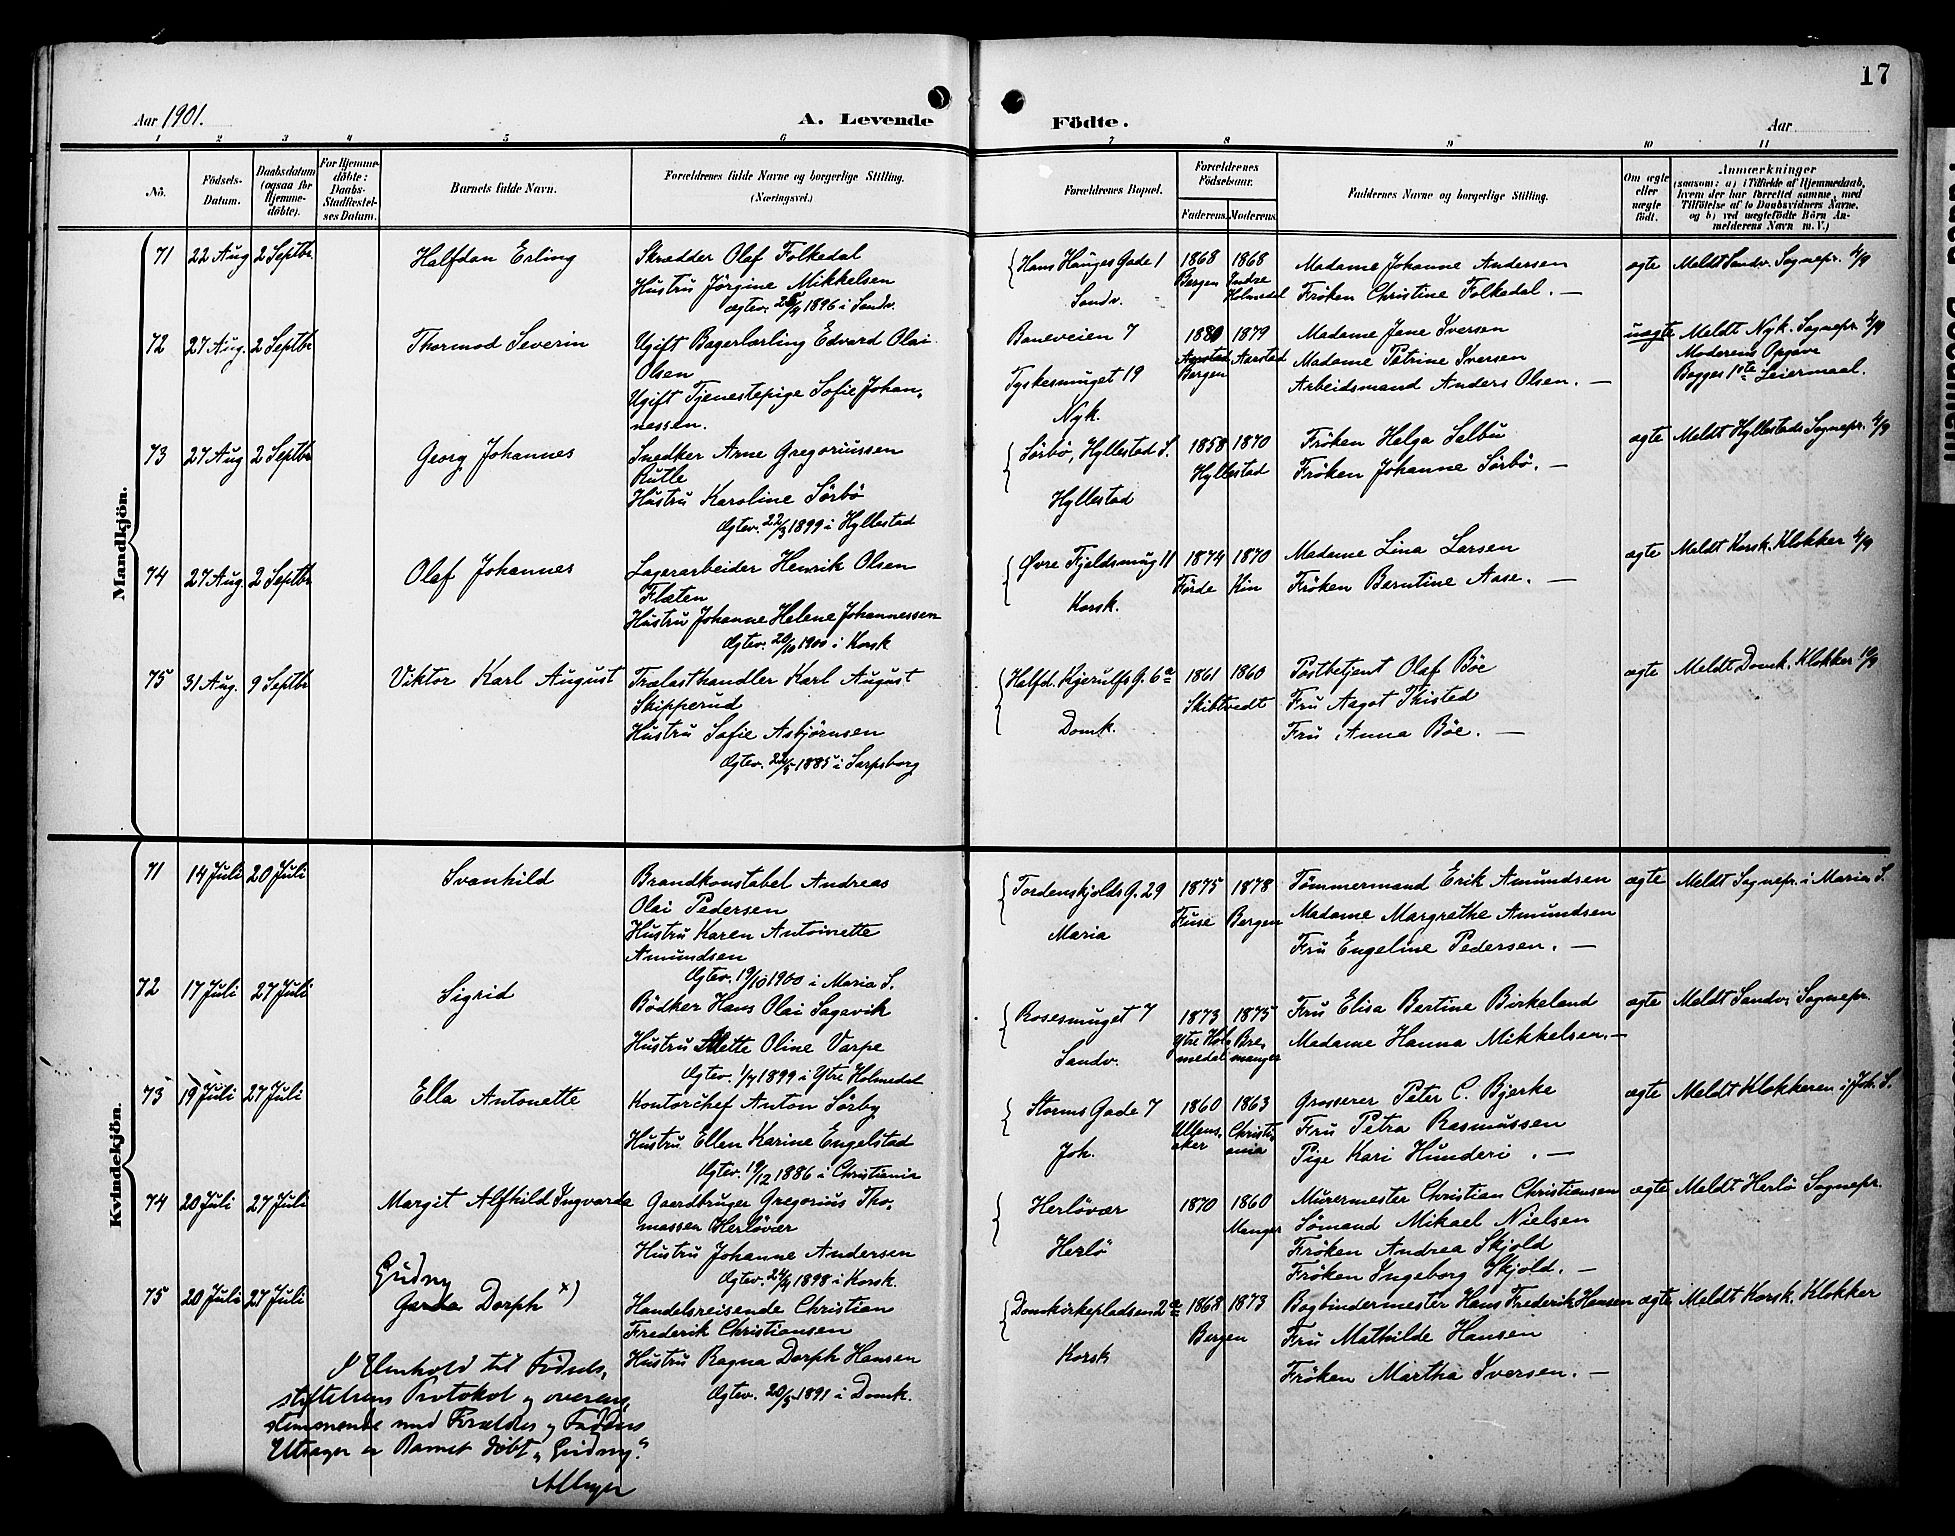 17
Aar 1901.
A. Levende Födte.
Aar
1 2 3 4 5 6 7 8 9 10 11
No.
Födsels-Datum.
Daabsdatum (ogsaa for Hjemme-döbte).
For Hjemme-döbte: Daabs-Stadfæstelses Datum.
Barnets fulde Navn.
Forældrenes fulde Navne og borgerlige Stilling. (Næringsvei.)
Forældrenes Bopæl.
Forældrenes Födselsaar.
Faderens. Moderens.
Faddernes Navne og borgerlige Stilling.
Om ægte eller uægte födt.
Anmærkninger
(saasom: a) i Tilfælde af Hjemmedaab, hvem der har forrettet samme, med Tilföielse af to Daabsvidners Navne, og b) ved uægtefödte Börn Anmelderens Navn m. V.)
Mandkjön.
71 22 Aug 2 Septbr. Halfdan Erling Skrædder Olaf Folkedal Hans Hauges Gade 1 1868 1868 Madame Johanne Andersen ægte Meldt Sandv. Sognepr. 4/9
Hustru Jörgine Mikkelsen Sandv. Bergen Indre Holmedal Fröken Christine Folkedal. —
ægtev. 1896 i Sandv.
72 27 Aug. 2 Septbr Thormod Severin Ugift Bagerlærling Edvard Olai Olsen Baneveien 7 1880 1879 Madame Jane Iversen uægte Meldt Nyk. Sognepr. 4/9
Aarstad Bergen Aarstad Madame Petrine Iversen Moderens Opgave
Ugift Tjenestepige Sofie Johannessen. Tyskesmuget 19 Nyk. Arbeidsmand Anders Olsen. — Begges 1ste Leiermaal.
73 27 Aug 2 Septbr Georg Johannes Snedker Arne Gregoriussen Rutle Sörbö, Hyllestad S. 1858 1870 Fröken Helga Selbu ægte Meldt Hyllestads Sognepr. 4/9
Hustru Karoline Sörbö Hyllestad Hyllestad Fröken Johanne Sörbö. —
Ægtev. 1899 i Hyllestad
74 27 Aug. 2 Septbr Olaf Johannes Lagerarbeider Henrik Olsen Flæten Øvre Fjeldsmug 11 1874 1870 Madame Lina Larsen ægte Meldt Korsk. Klokker 4/9
Hustru Johanne Helene Johannessen Korsk. Förde Kin Fröken Berntine Aase. —
Ægtev. 20/10 1900 i Korsk
75 31 Aug. 9 Septbr Viktor Karl August Trælasthandler Karl August Skipperud Halfd. Kjerulfs G. 6a 1861 1860 Postbetjent Olaf Böe ægte Meldt Domk. Klokker 10/9
Hustru Sofie Asbjörnsen Domk. Skibtvedt Fru Aagot Thisted
Ægtev. 1885 i Sarpsborg Fru Anna Böe. —
Kvindekjön.
71 14 Juli 20 Juli Svanhild Brandkonstabel Andreas Olai Pedersen Tordenskjolds G. 29 1875 1878 Tömmermand Erik Amundsen ægte Meldt Sognepr. i Maria S.
Hustru Karen Antoinette Amundsen Maria Fuse Bergen Madame Margrethe Amundsen
Ægtev. 19/10 1900 i Maria S. Fru Engeline Pedersen. —
72 17 Juli 27 Juli Sigrid Bödker Hans Olai Sagevik Rosesmuget 7 1873 1875 Fru Elisa Bertine Birkeland ægte Meldt Sandv. Sognepr.
Hustru Mette Oline Varpe Sandv. Ytre Holmedal Bremanger Madame Hanna Mikkelsen. —
Ægtev. 1899 i Ytre Holmedal
73 19 Juli 27 Juli Ella Antonette Kontorchef Anton Sörby Storms Gade 7 1860 1863 Grosserer Peter C. Bjerke ægte Meldt Klokkeren i Joh. S.
Hustru Ellen Karine Engelstad Joh. Ullensaker Christiania Fru Petra Rasmussen
Ægtev. 19/12 1886 i Christiania Pige Kari Hunderi. —
74 20 Juli 27 Juli Margit Alfhild Ingvarda Gaardbruger Gregorius Thomassen Herlövær Herlövær 1870 1860 Murermester Christian Christiansen ægte Meldt Herlö Sognepr.
Hustru Johanne Andersen Herlö Manger Sömand Mikael Nielsen
Ægtev. 1898 i Korsk. Fröken Andrea Skjold
Fröken Ingeborg Skjold. —
Gudny
75 20 Juli 27 Juli Gerda Dorph x) Handelsreisende Christian Frederik Christiansen Domkirkepladsen 2a 1868 1873 Bogbindermester Hans Frederik Hansen ægte Meldt Korsk. Klokker
Hustru Ragna Dorph Hansen Korsk Bergen Fru Mathilde Hansen
Ægtev. 1891 i Domk. Fröken Martha Iversen. —
I Henhold til Födsels-
stiftelsens Protokol og overens-
stemmende med Forældres og Faddres
Udsagn er Barnet döbt „Gudny“.